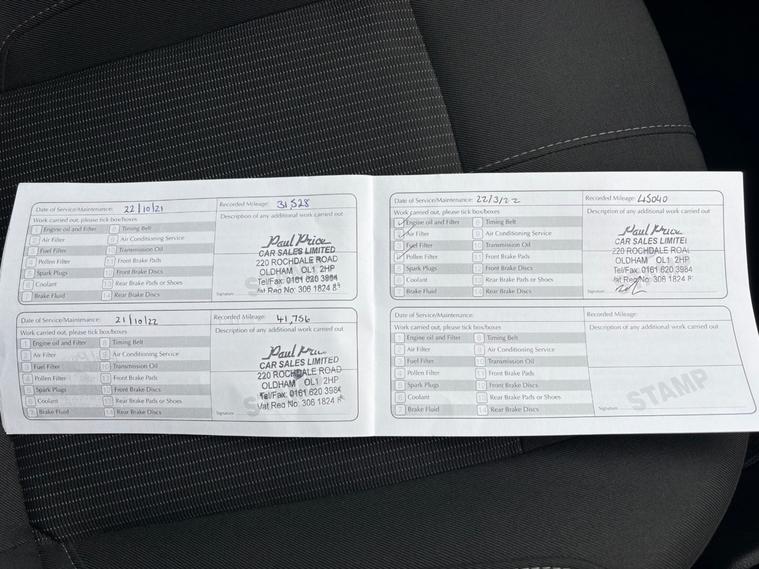 Date of Service/Maintenance: 22/10/21 Recorded Mileage: 31,528
Work carried out, please tick box/boxes Description of any additional work carried out
1 Engine oil and Filter 8 Timing Belt
2 Air Filter 9 Air Conditioning Service
3 Fuel Filter 10 Transmission Oil
4 Pollen Filter 11 Front Brake Pads
5 Spark Plugs 12 Front Brake Discs
6 Coolant 13 Rear Brake Pads or Shoes
7 Brake Fluid 14 Rear Brake Discs
Paul Price
CAR SALES LIMITED
220 ROCHDALE ROAD
OLDHAM OL1 2HP
Tel/Fax: 0161 620 3984
Vat Reg No: 306 1824
Signature
Date of Service/Maintenance: 21/10/22 Recorded Mileage: 41,756
Work carried out, please tick box/boxes Description of any additional work carried out
1 Engine oil and Filter 8 Timing Belt
2 Air Filter 9 Air Conditioning Service
3 Fuel Filter 10 Transmission Oil
4 Pollen Filter 11 Front Brake Pads
5 Spark Plugs 12 Front Brake Discs
6 Coolant 13 Rear Brake Pads or Shoes
7 Brake Fluid 14 Rear Brake Discs
Paul Price
CAR SALES LIMITED
220 ROCHDALE ROAD
OLDHAM OL1 2HP
Tel/Fax: 0161 620 3984
Vat Reg No: 306 1824
Signature
Date of Service/Maintenance: 22/3/22 Recorded Mileage: 45040
Work carried out, please tick box/boxes Description of any additional work carried out
Engine oil and Filter 8 Timing Belt
Air Filter 9 Air Conditioning Service
3 Fuel Filter 10 Transmission Oil
Pollen Filter 11 Front Brake Pads
5 Spark Plugs 12 Front Brake Discs
6 Coolant 13 Rear Brake Pads or Shoes
7 Brake Fluid 14 Rear Brake Discs
Paul Price
CAR SALES LIMITE
220 ROCHDALE ROA
OLDHAM OL1 2HP
Tel/Fax: 0161 620 3984
Vat Reg No: 306 1824
Signature
Date of Service/Maintenance: Recorded Mileage:
Work carried out, please tick box/boxes Description of any additional work carried out
1 Engine oil and Filter 8 Timing Belt
2 Air Filter 9 Air Conditioning Service
3 Fuel Filter 10 Transmission Oil
4 Pollen Filter 11 Front Brake Pads
5 Spark Plugs 12 Front Brake Discs
6 Coolant 13 Rear Brake Pads or Shoes
7 Brake Fluid 14 Rear Brake Discs
STAMP
Signature